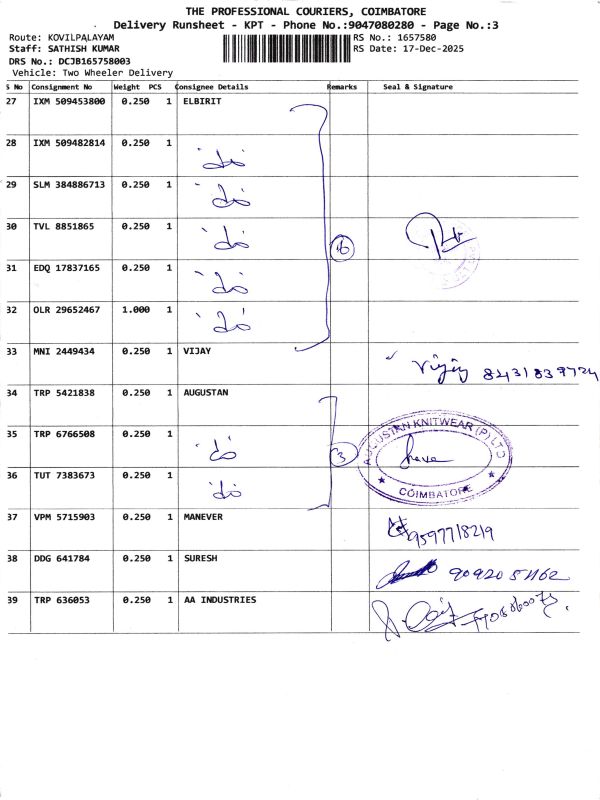 THE PROFESSIONAL COURIERS, COIMBATORE
Delivery Runsheet - KPT - Phone No.:9047080280 - Page No.:3
Route: KOVILPALAYAM RS No.: 1657580
Staff: SATHISH KUMAR RS Date: 17-Dec-2025
DRS No.: DCJB165758003
Vehicle: Two Wheeler Delivery
S No Consignment No Weight PCS Consignee Details Remarks Seal & Signature
27 IXM 509453800 0.250 1 ELBIRIT
28 IXM 509482814 0.250 1 "do
29 SLM 384886713 0.250 1 "do
30 TVL 8851865 0.250 1 "do
31 EDQ 17837165 0.250 1 "do
32 OLR 29652467 1.000 1 "do
33 MNI 2449434 0.250 1 VIJAY Vijay 8431839724
34 TRP 5421838 0.250 1 AUGUSTAN
35 TRP 6766508 0.250 1 "do 3 AUGUSTAN KNITWEAR (P) LTD
36 TUT 7383673 0.250 1 "do COIMBATORE
37 VPM 5715903 0.250 1 MANEVER 9597718219
38 DDG 641784 0.250 1 SURESH
39 TRP 636053 0.250 1 AA INDUSTRIES